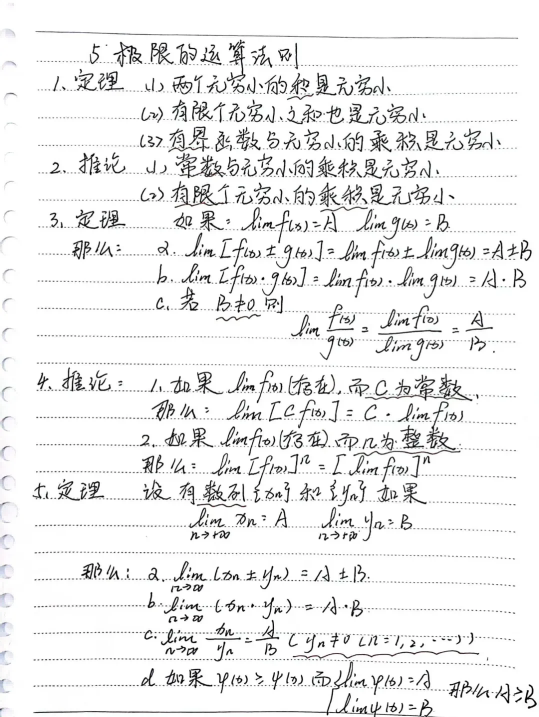 5 极限的运算法则
1. 定理 (1) 两个无穷小的和是无穷小
(2) 有限个无穷小之和也是无穷小
(3) 有界函数与无穷小的乘积是无穷小
2. 推论 (1) 常数与无穷小的乘积是无穷小
(2) 有限个无穷小的乘积是无穷小
3. 定理 如果: lim f(x) = A lim g(x) = B
那么: a. lim [f(x) ± g(x)] = lim f(x) ± lim g(x) = A ± B
b. lim [f(x) · g(x)] = lim f(x) · lim g(x) = A · B
c. 若 B≠0 则
lim f(x)/g(x) = lim f(x)/lim g(x) = A/B.
4. 推论: 1. 如果 lim f(x) (存在), 而 C 为常数,
那么: lim [C f(x)] = C · lim f(x)
2. 如果 lim f(x) (存在) 而 n 为整数
那么: lim [f(x)]ⁿ = [lim f(x)]ⁿ
5. 定理 设有数列 {xn} 和 {yn} 如果
lim n→+∞ xn = A lim n→+∞ yn = B
那么: a. lim n→∞ (xn ± yn) = A ± B.
b. lim n→∞ (xn · yn) = A · B
c. lim n→∞ xn/yn = A/B (yn ≠ 0 (n=1, 2, ……))
d 如果 φ(x) ≥ ψ(x) 而 { lim φ(x) = A 那么 A≥B
lim ψ(x) = B